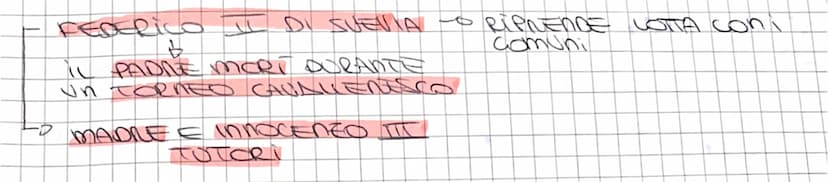 FEDERICO II DI SVEVIA → RIPRENDE LOTTA CON i
COMUNI
IL PADRE MORÌ DURANTE
UN TORNEO CAVALLERESCO
MADRE E INNOCENZO III
TUTORI